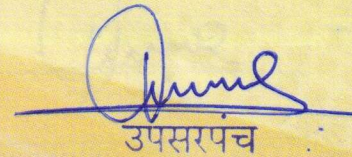 उपसरपंच